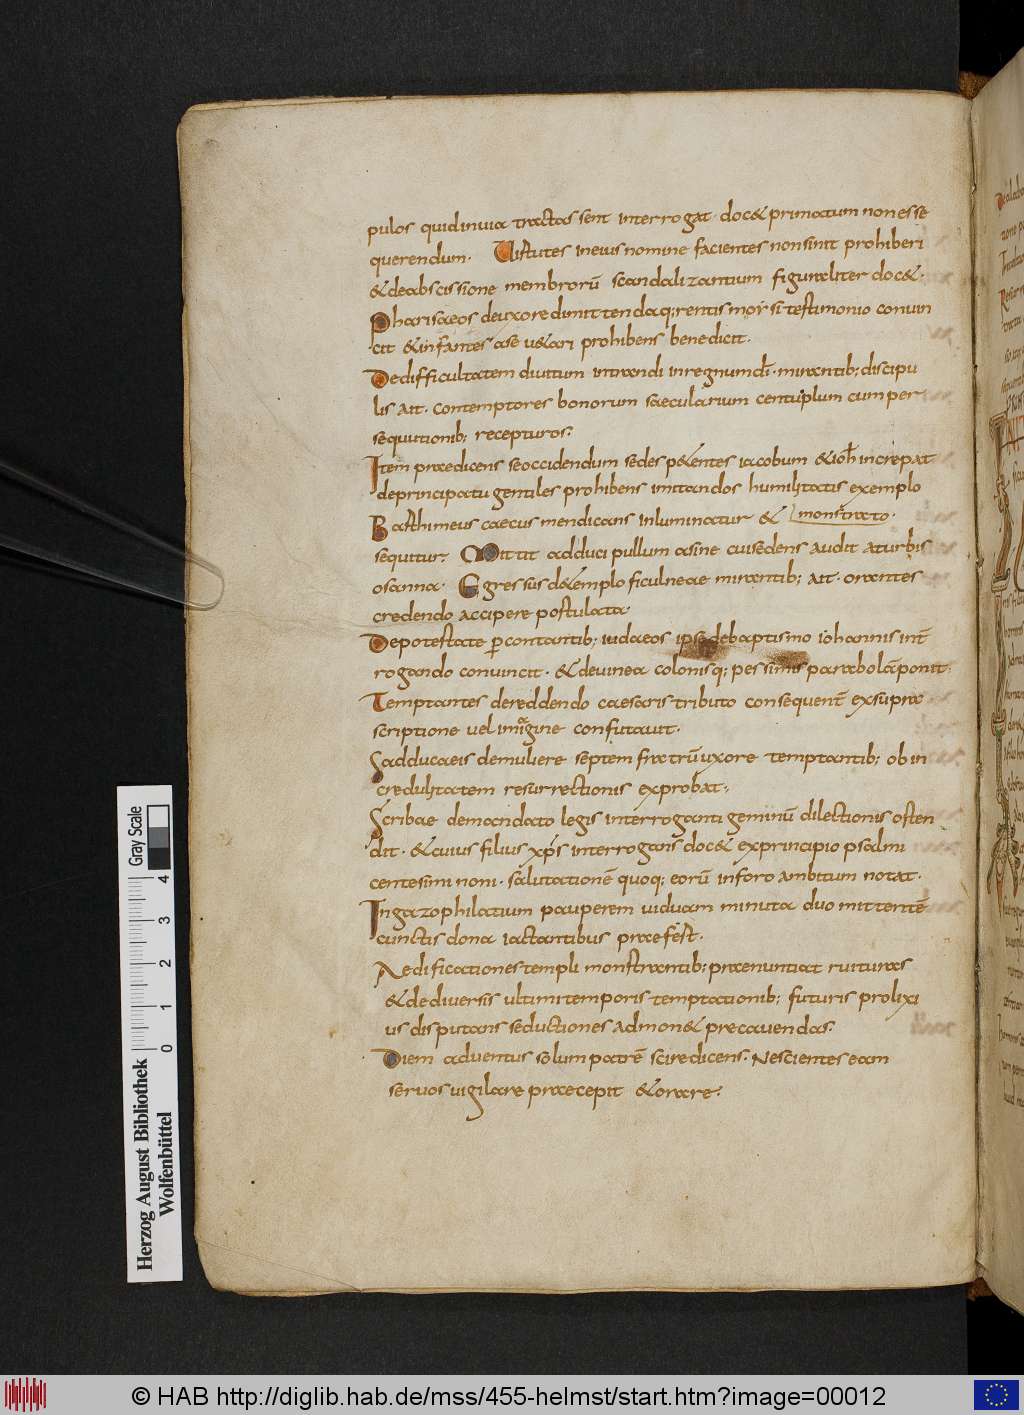 pulos quid inuia tractassent interrogat. doc& primatum non esse
querendum. Uirtutes in eius nomine facientes non sinit prohiberi
& de abscissione membrorū scandalizantium figuraliter doc&.
Pharisaeos de uxore dimittenda q;rentis moy̅si testimonio conuin
cit & infantes a se u&ari prohibens benedicit.
De difficultatem diuitum intrandi in regnum dī. mirantib; discipu
lis ait. contemptores bonorum saecularium centuplum cum per
sequutionib; recepturos.
Item praedicens se occidendum sedes p&entes iacobum & ioh̄ increpat
de principatu gentiles prohibens imitandos humilitatis exemplo
Barthimeus caecus mendicans inluminatur & monstrato.
sequitur. Mittit adduci pullum asine cui sedens audit a turbis
osanna. Egressus d& exemplo ficulneae mirantib; ait. orantes
credendo accipere postulata
De potestate p̱contantib; iudaeos ipse de baptismo iohannis int̄
rogando conuincit. & de uinea colonisq; pessimis parabolā ponit.
Temptantes de reddendo caesaris tributo consequent̄ ex supra
scriptione uel imagine confutauit.
Sadducaeis de muliere septem fratrū uxore temptantib; ob in
credulitatem resurrectionis exprobat.
Scribae de mandato legis interroganti geminū dilectionis osten
dit. & cuius filius xp̄s interrogans doc& ex principio psalmi
centesimi noni. salutationē quoq; eorū in foro ambitum notat.
In gazophilatium pauperem uiduam minuta duo mittentē
cunctis dona iactantibus praefert.
Aedificationes templi monstrantib; praenuntiat ruituras
& de diuersis ultimi temporis temptationib; futuris prolixi
us disputans seductiones admon& precauendas.
Diem aduentus solum patrē scire dicens. Nescientes eam
seruos uigilare praecepit & orare.
Herzog August Bibliothek
Wolfenbüttel
Gray Scale
0 1 2 3 4
© HAB http://diglib.hab.de/mss/455-helmst/start.htm?image=00012